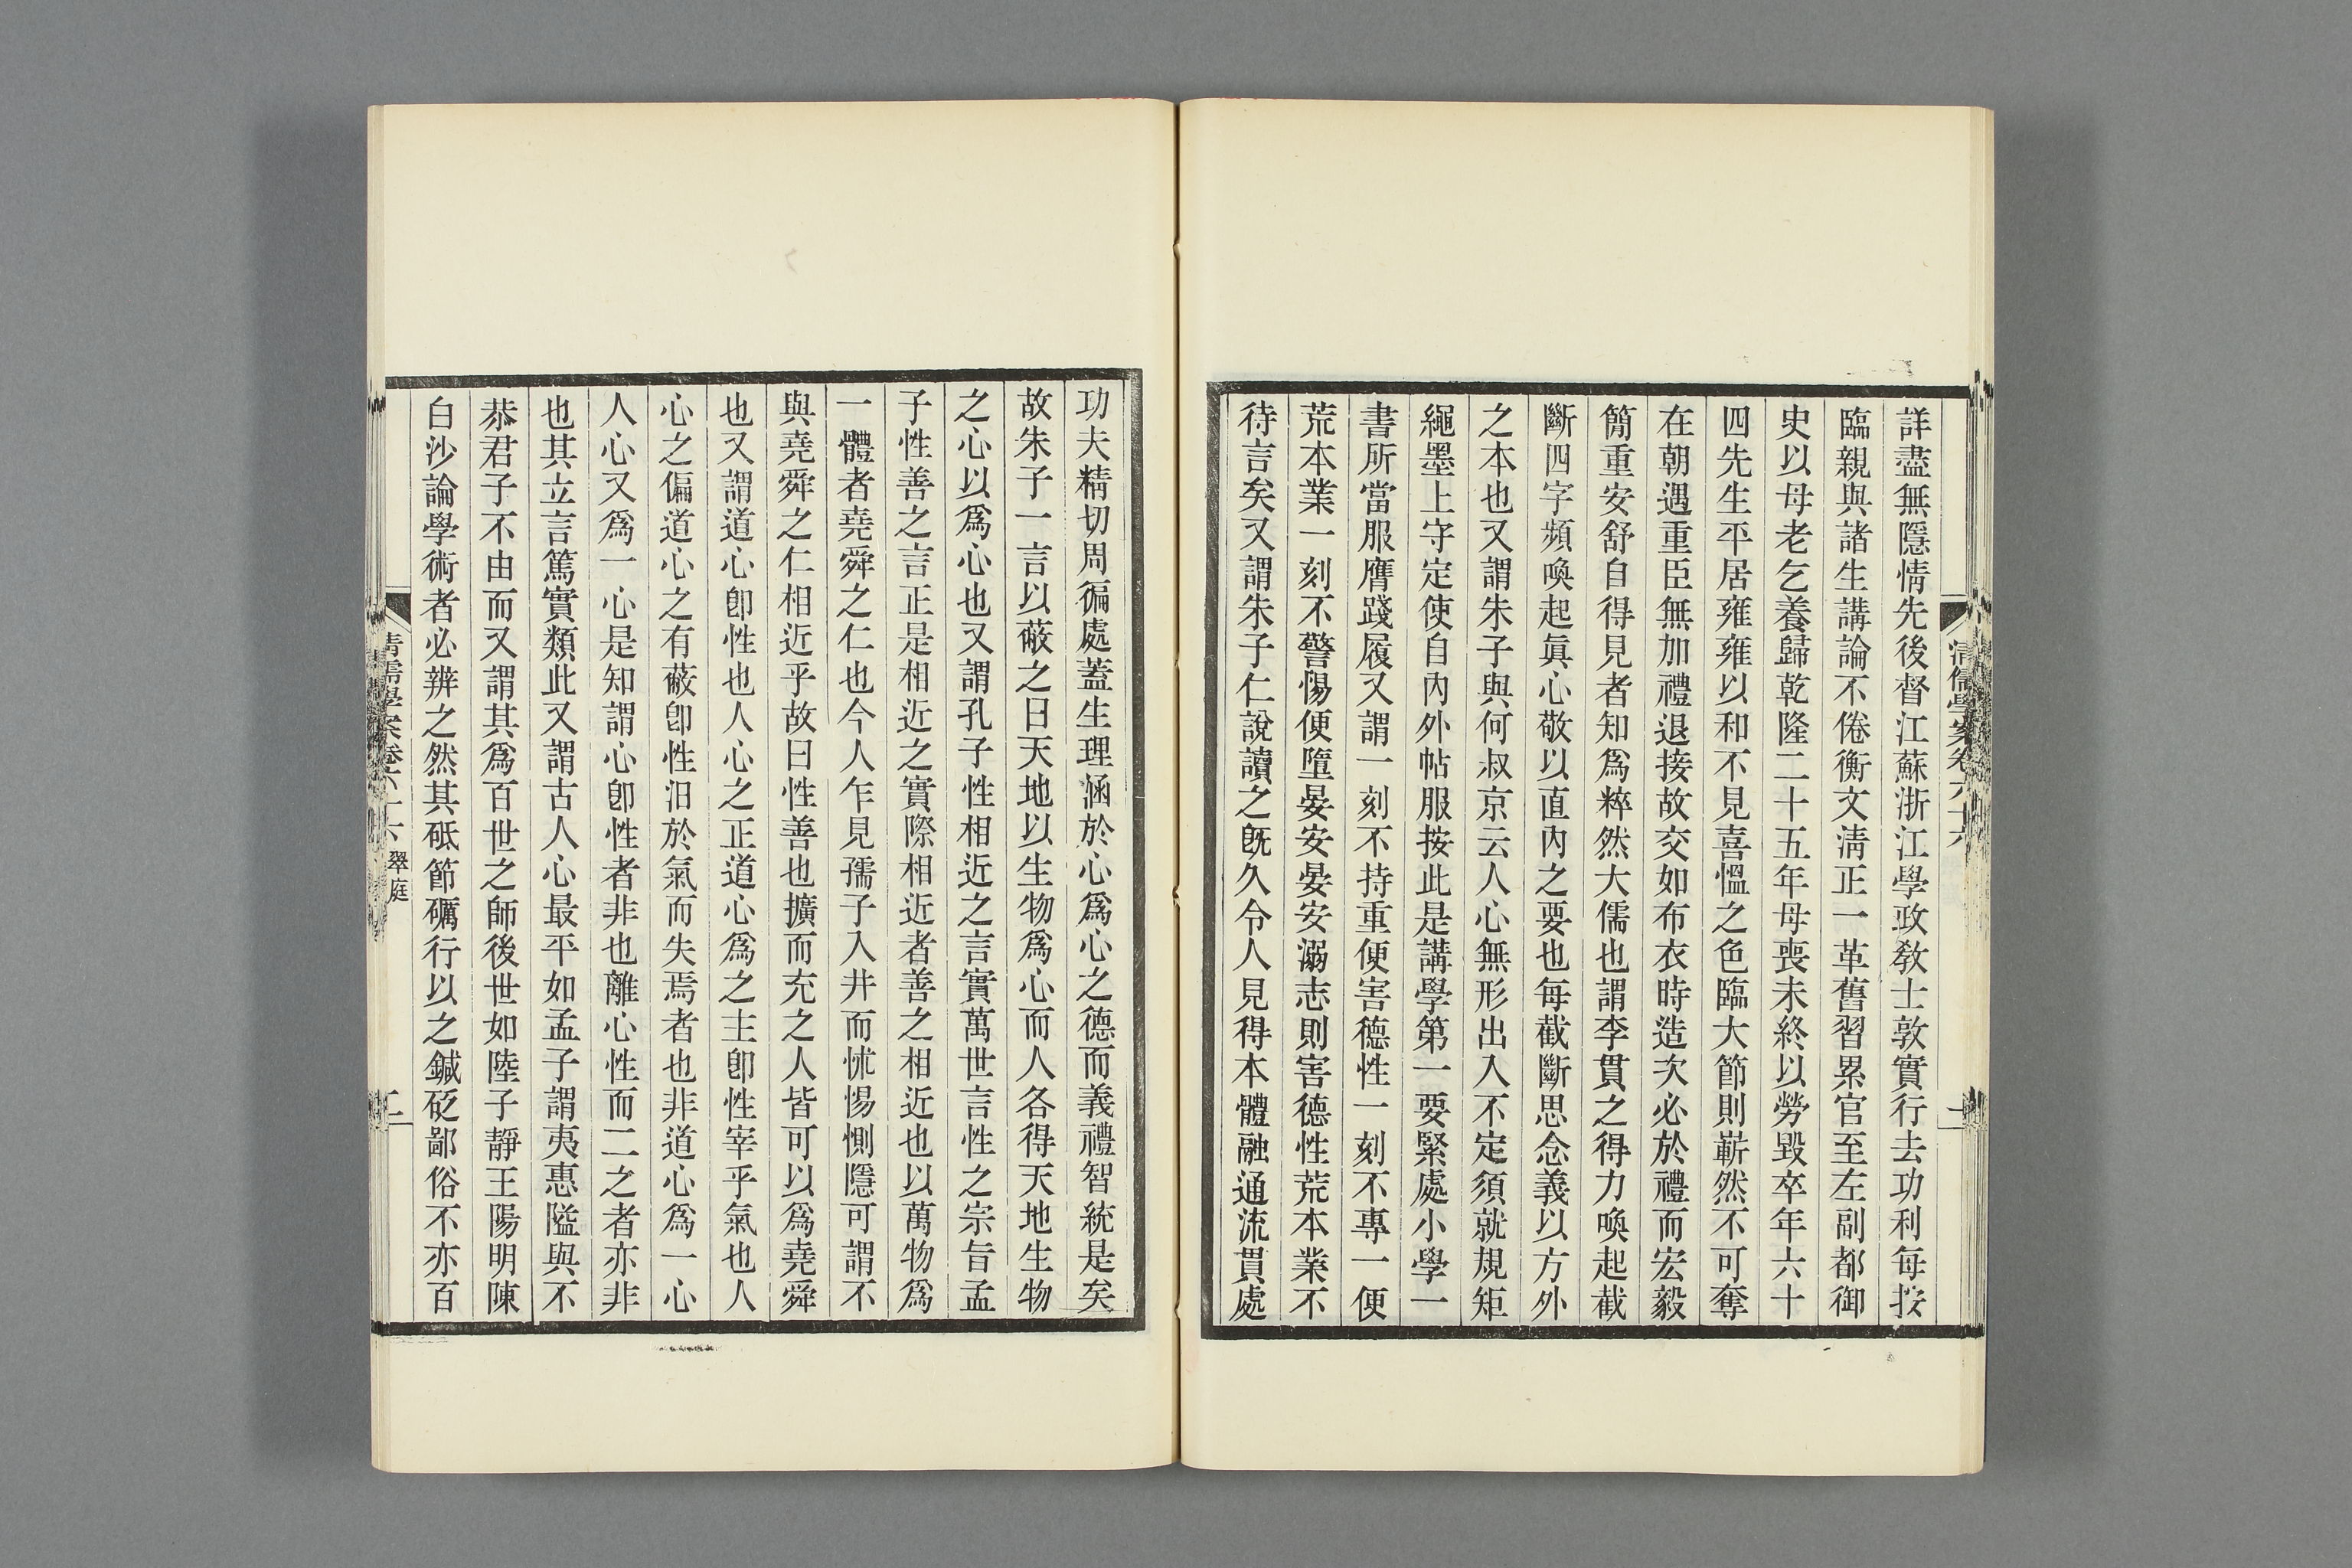 詳盡無隱情先後督江蘇浙江學政敎士敦實行去功利每按
臨親與諸生講論不倦衡文淸正一革舊習累官至左副都御
史以母老乞養歸乾隆二十五年母喪未終以勞毀卒年六十
四先生平居雍雍以和不見喜慍之色臨大節則嶄然不可奪
在朝遇重臣無加禮退接故交如布衣時造次必於禮而宏毅
簡重安舒自得見者知爲粹然大儒也謂李貫之得力喚起截
斷四字頻喚起眞心敬以直內之要也每截斷思念義以方外
之本也又謂朱子與何叔京云人心無形出入不定須就規矩
繩墨上守定使自內外帖服按此是講學第一要緊處小學一
書所當服膺踐履又謂一刻不持重便害德性一刻不專一便
荒本業一刻不警惕便墮晏安晏安溺志則害德性荒本業不
待言矣又謂朱子仁說讀之旣久令人見得本體融通流貫處
功夫精切周徧處蓋生理涵於心爲心之德而義禮智統是矣
故朱子一言以蔽之曰天地以生物爲心而人各得天地生物
之心以爲心也又謂孔子性相近之言實萬世言性之宗旨孟
子性善之言正是相近之實際相近者善之相近也以萬物爲
一體者堯舜之仁也今人乍見孺子入井而怵惕惻隱可謂不
與堯舜之仁相近乎故曰性善也擴而充之人皆可以爲堯舜
也又謂道心卽性也人心之正道心爲之主卽性宰乎氣也人
心之偏道心之有蔽卽性汩於氣而失焉者也非道心爲一心
人心又爲一心是知謂心卽性者非也離心性而二之者亦非
也其立言篤實類此又謂古人心最平如孟子謂夷惠隘與不
恭君子不由而又謂其爲百世之師後世如陸子靜王陽明陳
白沙論學術者必辨之然其砥節礪行以之鍼砭鄙俗不亦百
淸儒學案卷六十六 翠庭
二